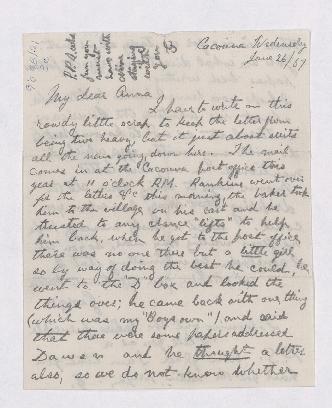 Cacouna Wednesday
June 26/
My dear Anna
I have to write on this
rowdy little scrap to keep the letter from
being too heavy, but it just about suits
all the news going down here. The mail
comes in at the Cacouna post office this
year at 11 o'clock P.M. Rankine went over
for the letters &c this morning, the baker took
him to the village on his cart and he
trusted to any chance "lifts" to help
him back, when he got to the post office
there was no one there but a little girl
so by way of doing the best he could, he
went to the D box and looked the
things over; he came back with one thing
(which was my "Boys own") and said
that there were some papers addressed
Dawson and he thought a letter
also, so we do not know whether